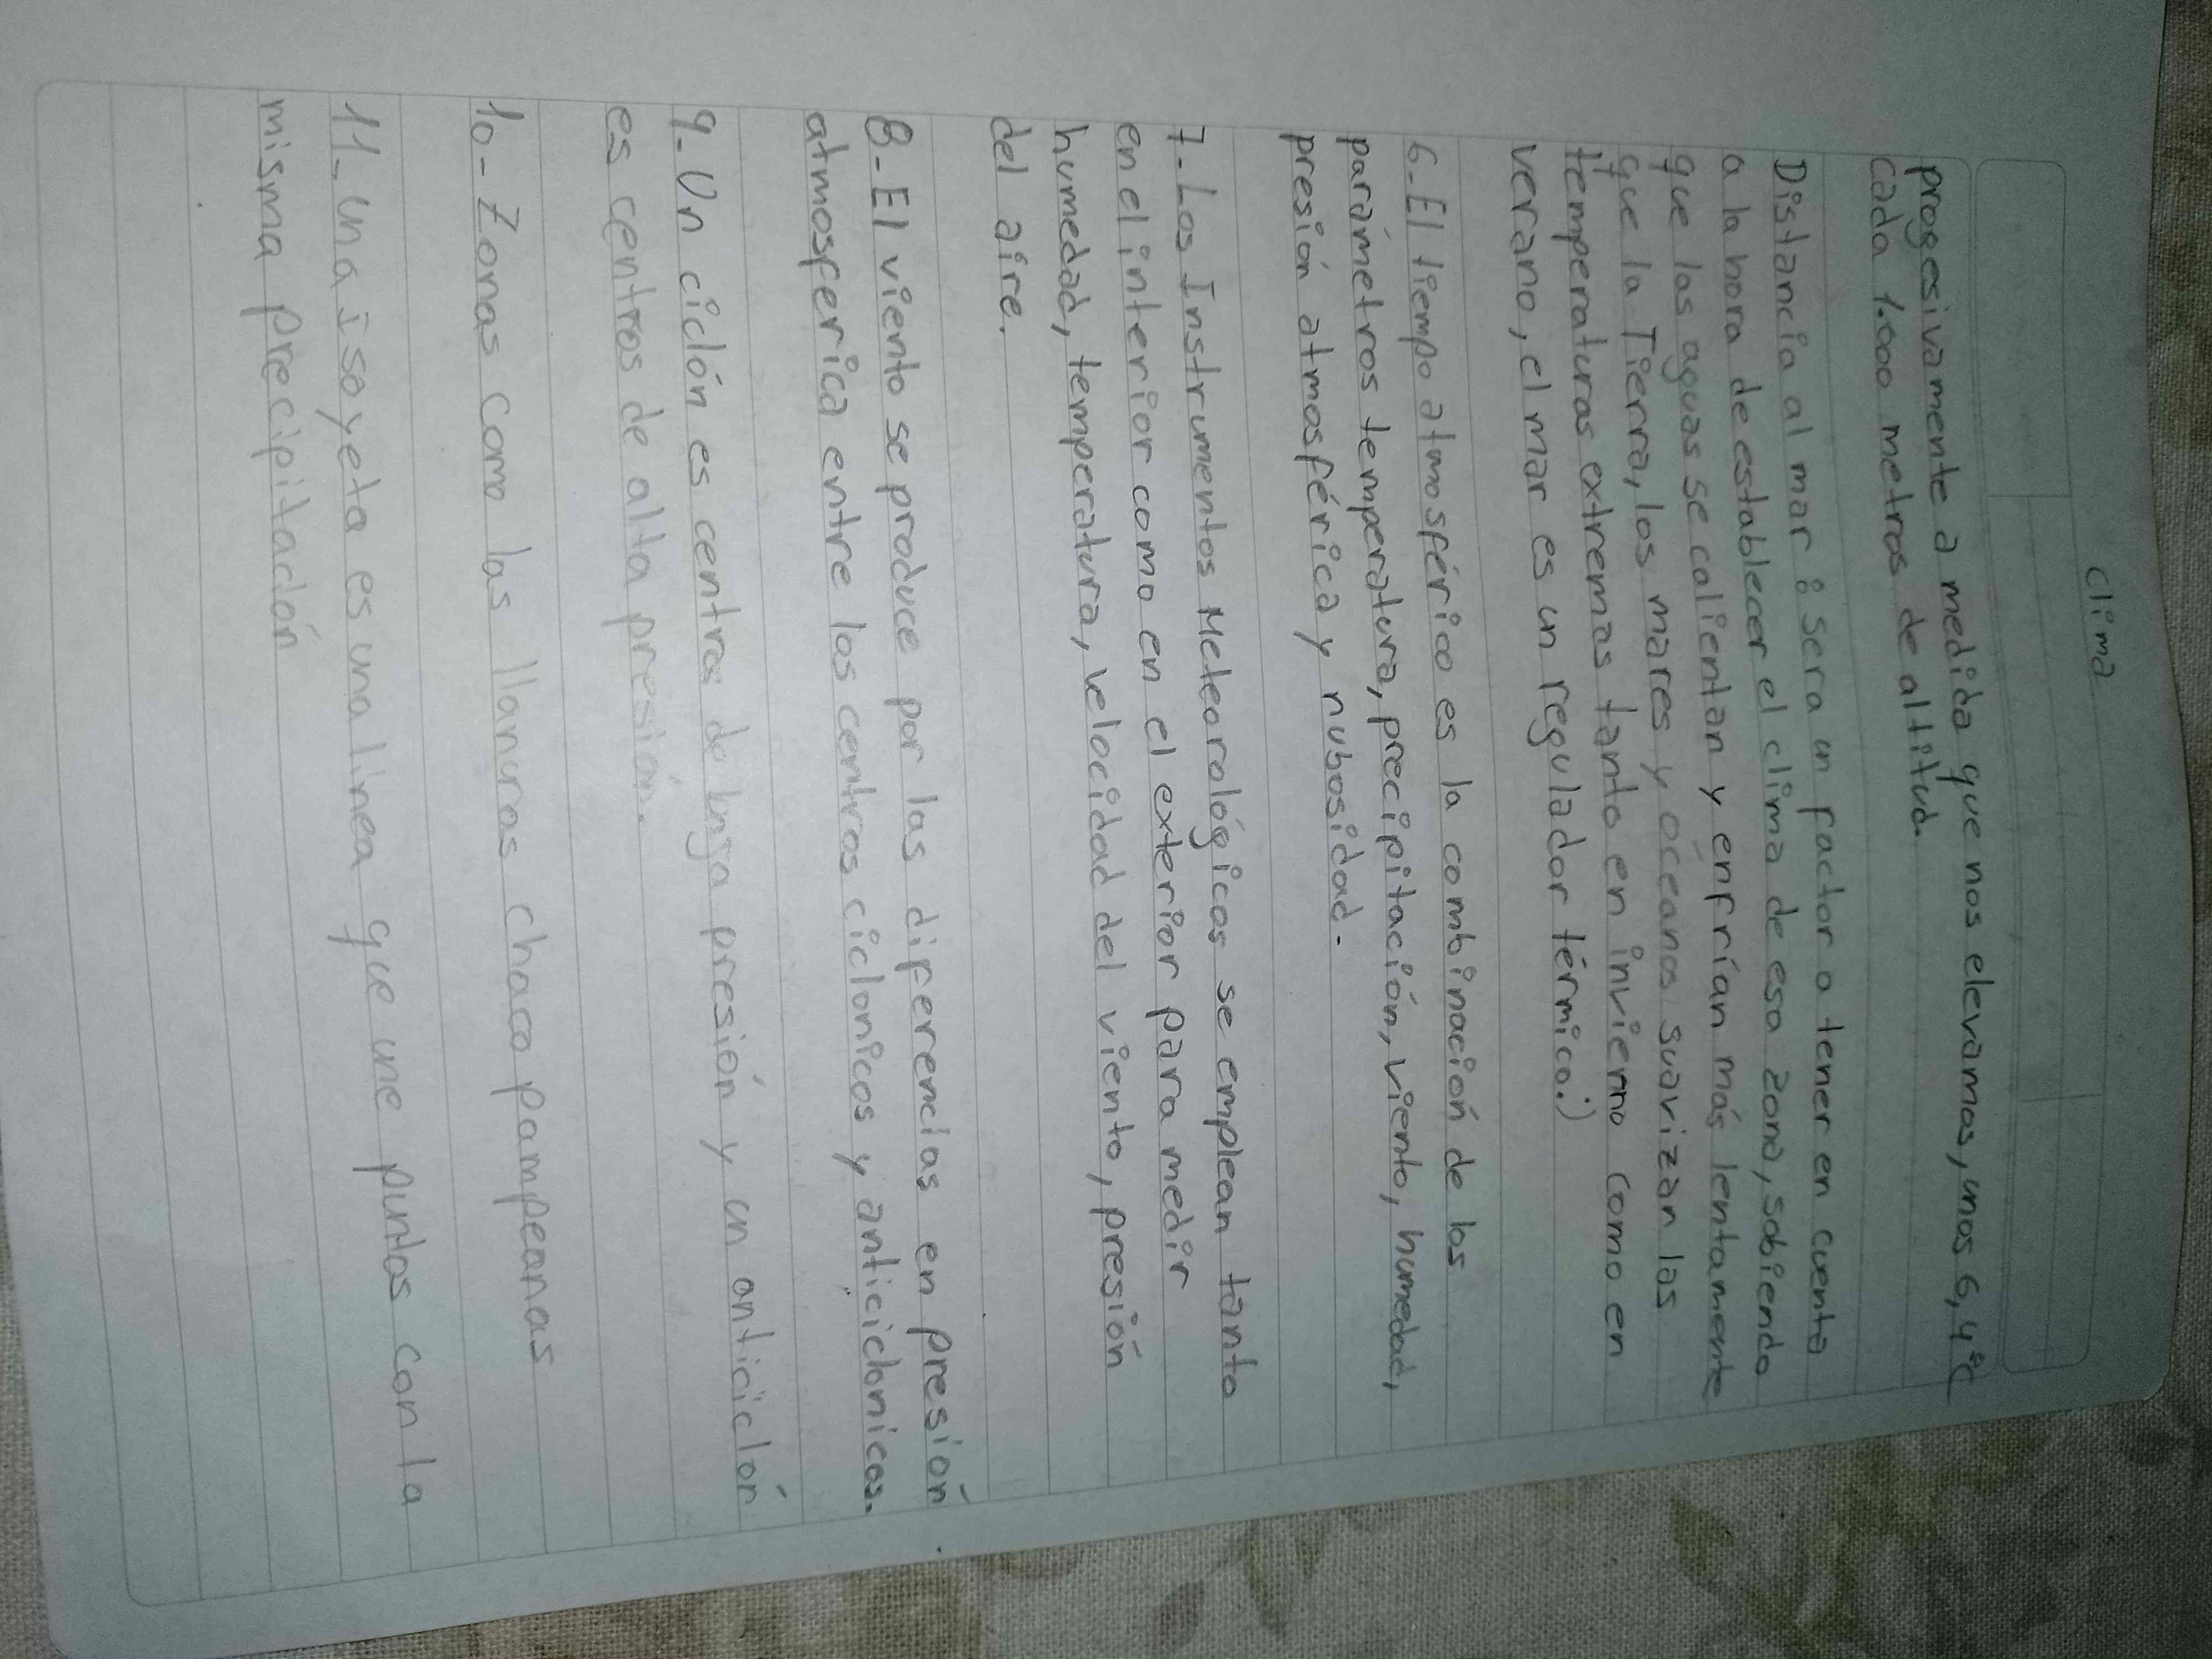 clima
progesivamente a medida que nos elevamos, unos 6,4°C
cada 1.000 metros de altitud.
Distancia al mar: sera un factor a tener en cuenta
a la hora de establecer el clima de esa zona, sabiendo
que las aguas se calientan y enfrían más lentamente
que la Tierra, los mares y oceanos suavizan las
temperaturas extremas tanto en invierno como en
verano, el mar es un regulador térmico:)
6-El tiempo atmosférico es la combinación de los
parámetros temperatura, precipitación, viento, humedad,
presión atmosférica y nubosidad.
7-Los Instrumentos Metearológicos se emplean tanto
en el interior como en el exterior para medir
humedad, temperatura, velocidad del viento, presión
del aire.
8-El viento se produce por las diferencias en presión
atmosferica entre los centros ciclonicos y anticiclonicos.
9-Un ciclón es centros de baja presión y un anticiclón
es centros de alta presión.
10-Zonas como las llanuras chaco pampeanas
11-una isoyeta es una linea que une puntos con la
misma precipitación